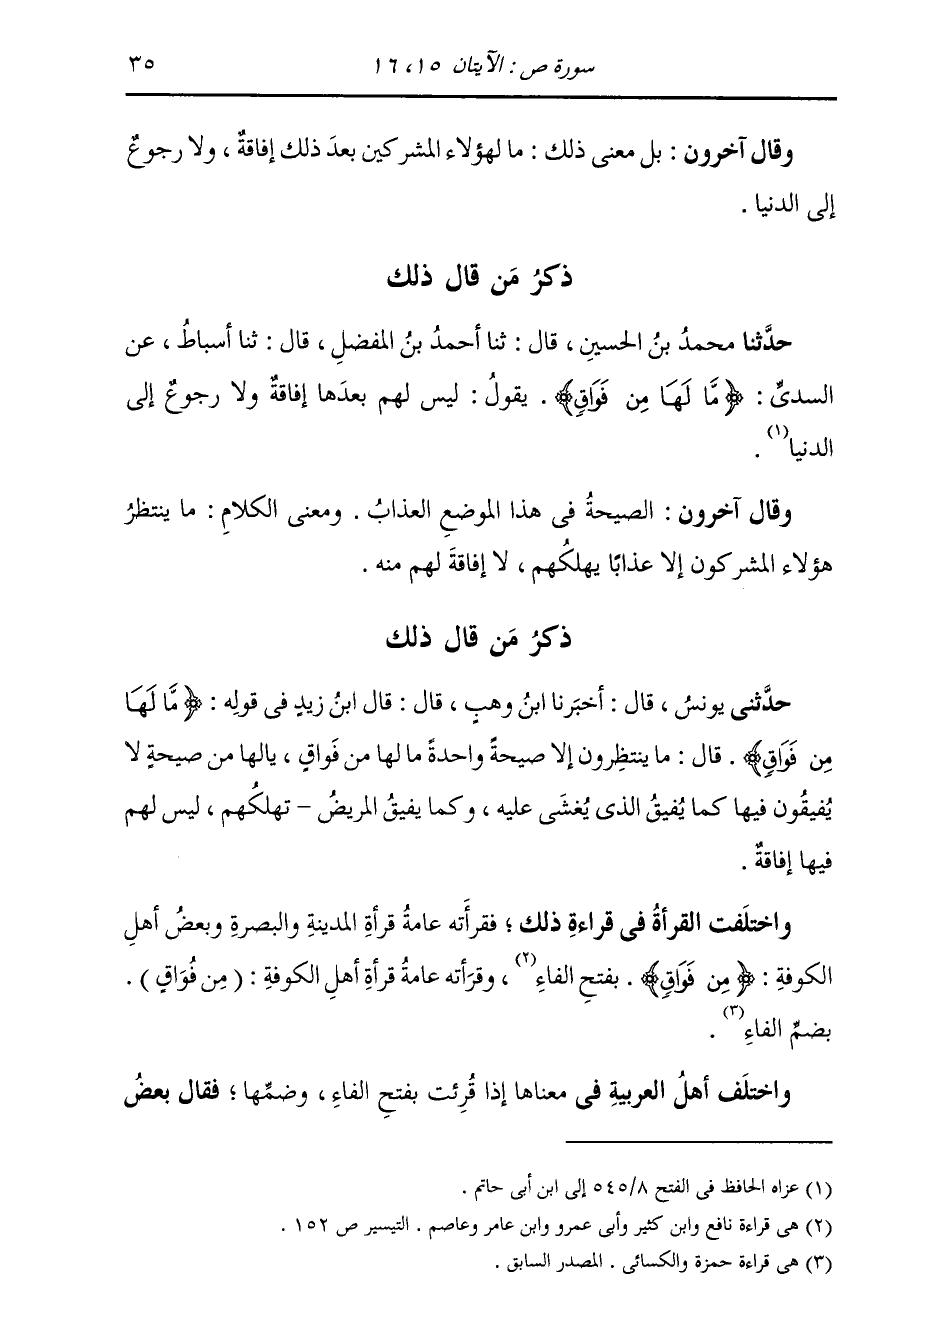 سورة ص : الآيتان ١٥، ١٦ ٣٥
وقال آخرون : بل معنى ذلك : ما لهؤلاء المشركين بعدَ ذلك إفاقةٌ ، ولا رجوعٌ
إلى الدنيا .
ذكرُ مَن قال ذلك
حدَّثنا محمدُ بنُ الحسينِ ، قال : ثنا أحمدُ بنُ المفضلِ ، قال : ثنا أسباطُ ، عن
السدىِّ : ﴿مَّا لَهَا مِن فَوَاقٍ﴾ . يقولُ : ليس لهم بعدَها إفاقةٌ ولا رجوعٌ إلى
الدنيا(١) .
وقال آخرون : الصيحةُ فى هذا الموضعِ العذابُ . ومعنى الكلامِ : ما ينتظرُ
هؤلاء المشركون إلا عذابًا يهلكُهم ، لا إفاقةَ لهم منه .
ذكرُ مَن قال ذلك
حدَّثنى يونسُ ، قال : أخبَرنا ابنُ وهبٍ ، قال : قال ابنُ زيدٍ فى قولِه : ﴿مَّا لَهَا
مِن فَوَاقٍ﴾ . قال : ما ينتظِرون إلا صيحةً واحدةً ما لها من فَواقٍ ، يالها من صيحةٍ لا
يُفيقُون فيها كما يُفيقُ الذى يُغشَى عليه ، وكما يفيقُ المريضُ – تهلكُهم ، ليس لهم
فيها إفاقةٌ .
واختلَفت القرأةُ فى قراءةِ ذلك ؛ فقرأَته عامةُ قرأةِ المدينةِ والبصرةِ وبعضُ أهلِ
الكوفةِ : ﴿مِن فَوَاقٍ﴾ . بفتحِ الفاءِ(٢) ، وقرَأته عامةُ قرأةِ أهلِ الكوفةِ : ( مِن فُوَاقٍ ) .
بضمِّ الفاءِ(٣) .
واختلَف أهلُ العربيةِ فى معناها إذا قُرِئت بفتحِ الفاءِ ، وضمِّها ؛ فقال بعضُ
(١) عزاه الحافظ فى الفتح ٥٤٥/٨ إلى ابن أبى حاتم .
(٢) هى قراءة نافع وابن كثير وأبى عمرو وابن عامر وعاصم . التيسير ص ١٥٢ .
(٣) هى قراءة حمزة والكسائى . المصدر السابق .